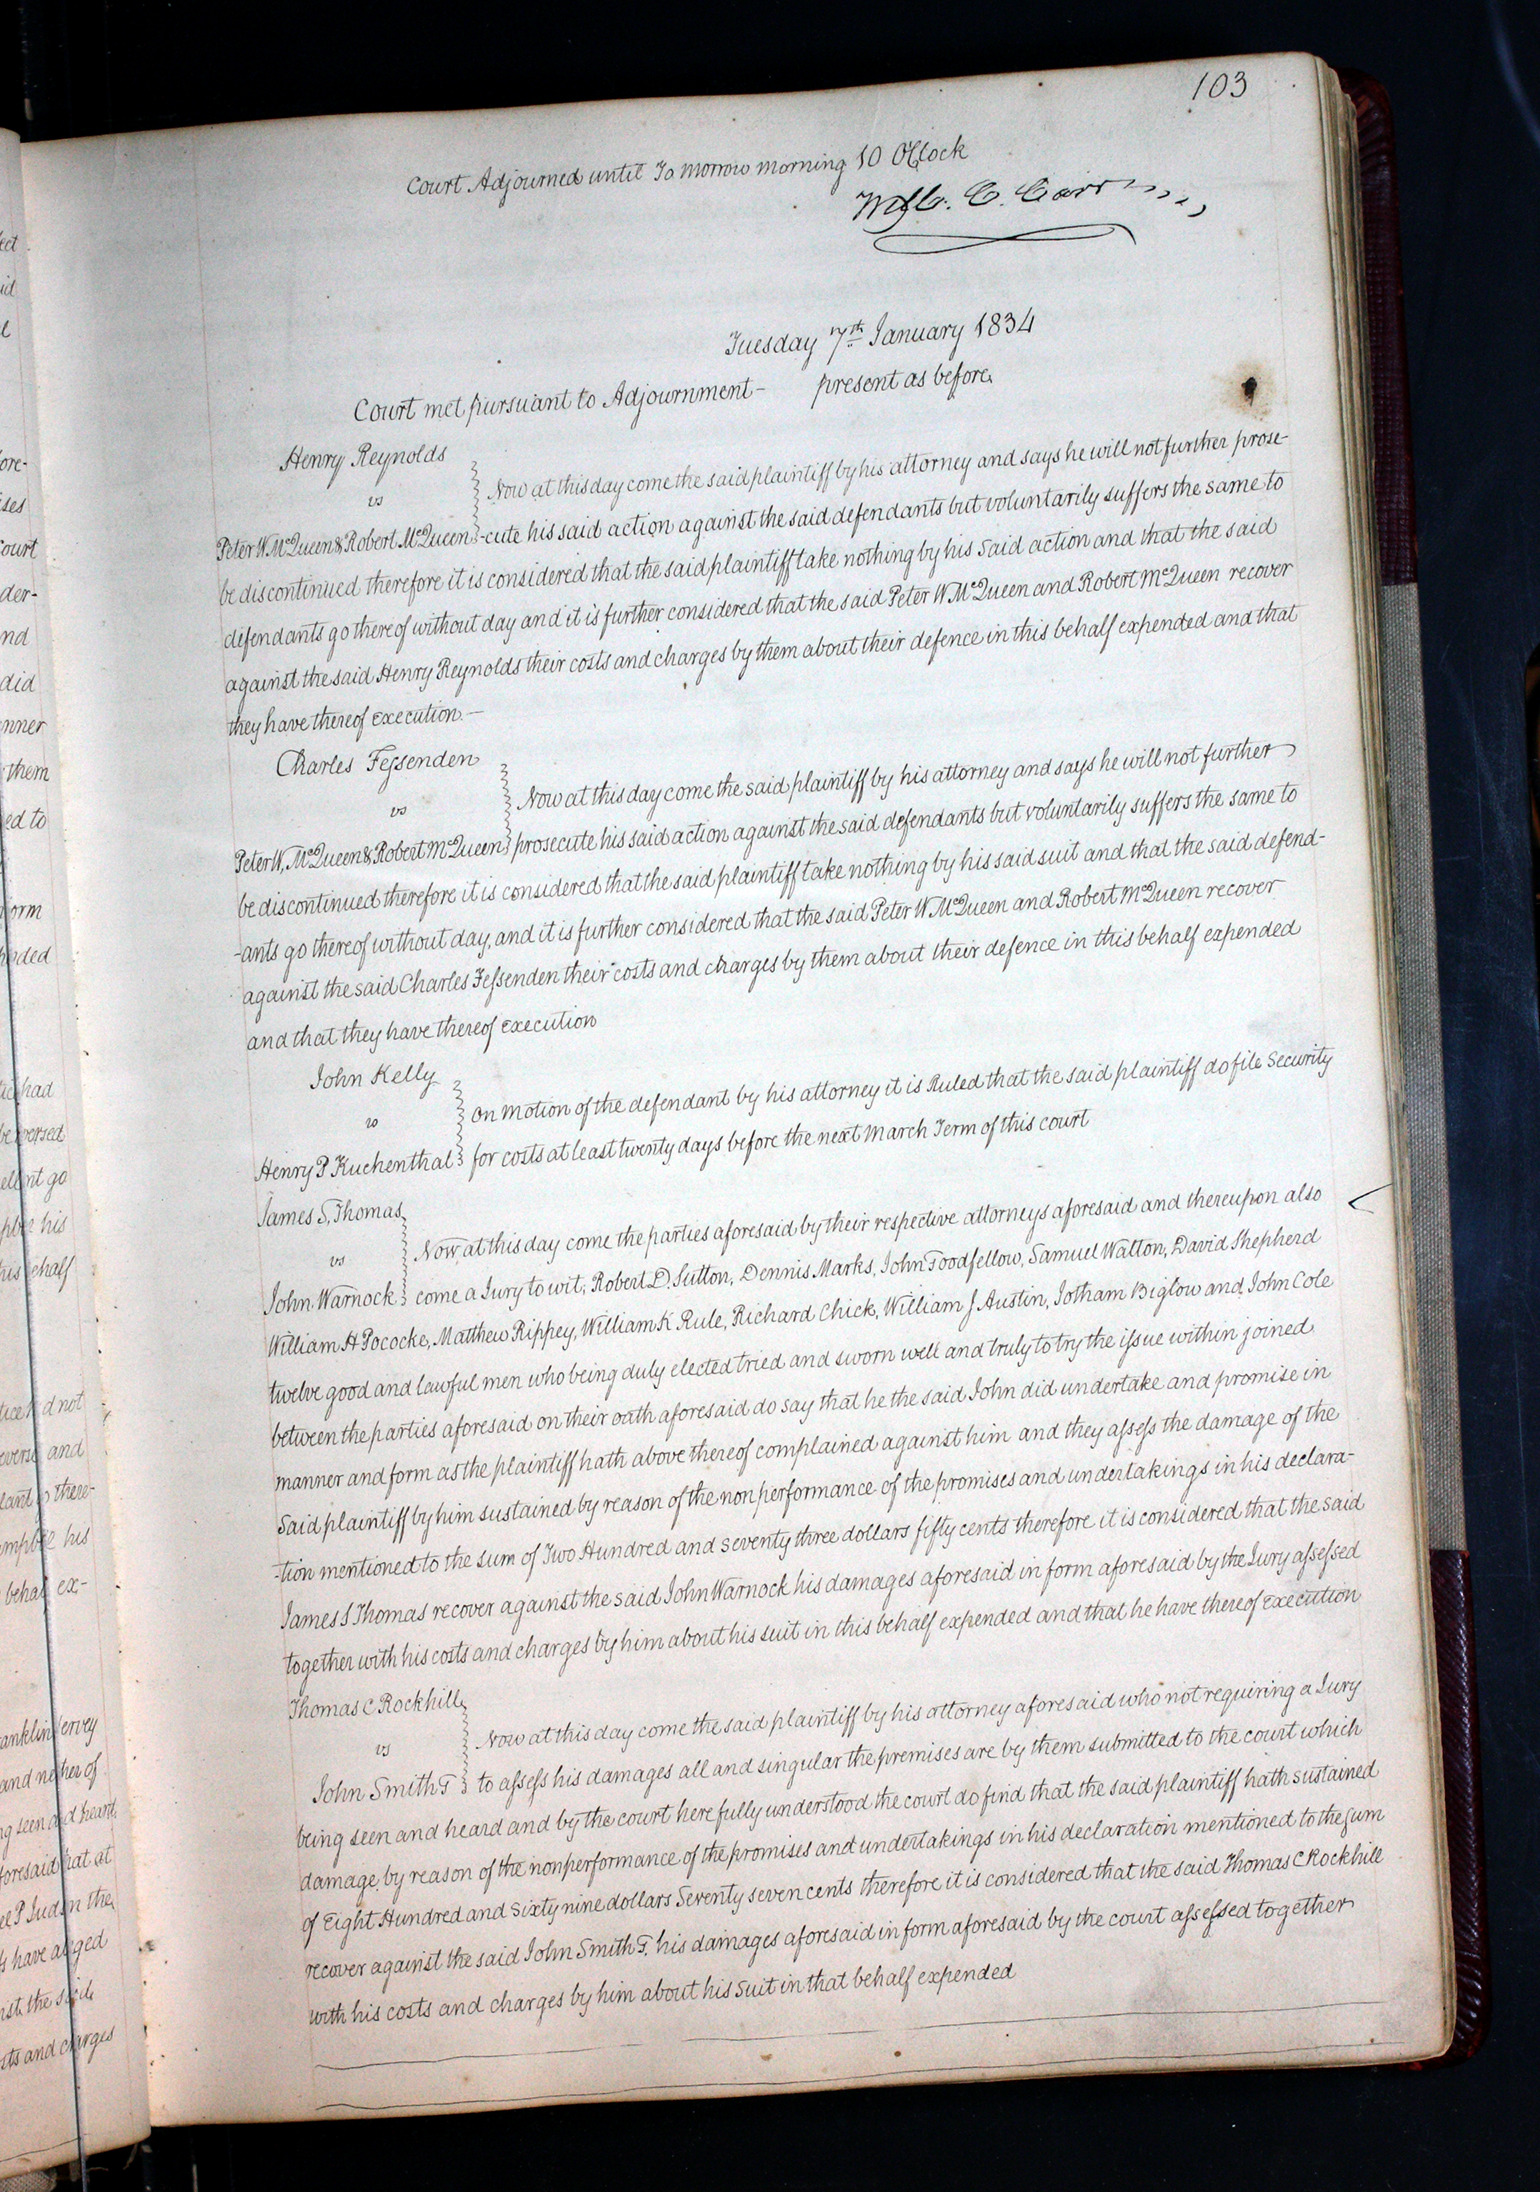 103
Court Adjourned until To morrow morning 10 OClock
Wm. C. Carr
Tuesday 7th January 1834
Court met pursuant to Adjournment- present as before.
Henry Reynolds
vs
Now at this day come the said plaintiff by his attorney and says he will not further prose-
Peter W. McQueen & Robert McQueen -cute his said action against the said defendants but voluntarily suffers the same to
be discontinued therefore it is considered that the said plaintiff take nothing by his said action and that the said
defendants go thereof without day and it is further considered that the said Peter W McQueen and Robert McQueen recover
against the said Henry Reynolds their costs and charges by them about their defence in this behalf expended and that
they have thereof execution.—
Charles Fessenden
vs
Now at this day come the said plaintiff by his attorney and says he will not further
Peter W. McQueen & Robert McQueen prosecute his said action against the said defendants but voluntarily suffers the same to
be discontinued therefore it is considered that the said plaintiff take nothing by his said suit and that the said defend-
-ants go thereof without day, and it is further considered that the said Peter W McQueen and Robert McQueen recover
against the said Charles Fessenden their costs and charges by them about their defence in this behalf expended
and that they have thereof execution
John Kelly
vs
On motion of the defendant by his attorney it is Ruled that the said plaintiff do file security
Henry P Kuchenthal for costs at least twenty days before the next March Term of this court
James S. Thomas
vs
Now at this day come the parties aforesaid by their respective attorneys aforesaid and thereupon also
John Warnock come a Jury to wit; Robert D. Sutton, Dennis Marks, John Goodfellow, Samuel Walton, David Shepherd
William H Pococke, Matthew Rippey, William K Rule, Richard Chick, William J Austin, Jotham Biglow and John Cole
twelve good and lawful men who being duly elected tried and sworn well and truly to try the issue within joined
between the parties aforesaid on their oath aforesaid do say that he the said John did undertake and promise in
manner and form as the plaintiff hath above thereof complained against him and they assess the damage of the
said plaintiff by him sustained by reason of the nonperformance of the promises and undertakings in his declara-
-tion mentioned to the sum of Two Hundred and seventy three dollars fifty cents therefore it is considered that the said
James S Thomas recover against the said John Warnock his damages aforesaid in form aforesaid by the Jury assessed
together with his costs and charges by him about his suit in this behalf expended and that he have thereof execution
Thomas C Rockhill
vs
Now at this day come the said plaintiff by his attorney aforesaid who not requiring a Jury
John Smith T to assess his damages all and singular the premises are by them submitted to the court which
being seen and heard and by the court here fully understood the court do find that the said plaintiff hath sustained
damage by reason of the nonperformance of the promises and undertakings in his declaration mentioned to the sum
of Eight Hundred and sixty nine dollars seventy seven cents therefore it is considered that the said Thomas C Rockhill
recover against the said John Smith T. his damages aforesaid in form aforesaid by the court assessed together
with his costs and charges by him about his suit in that behalf expended